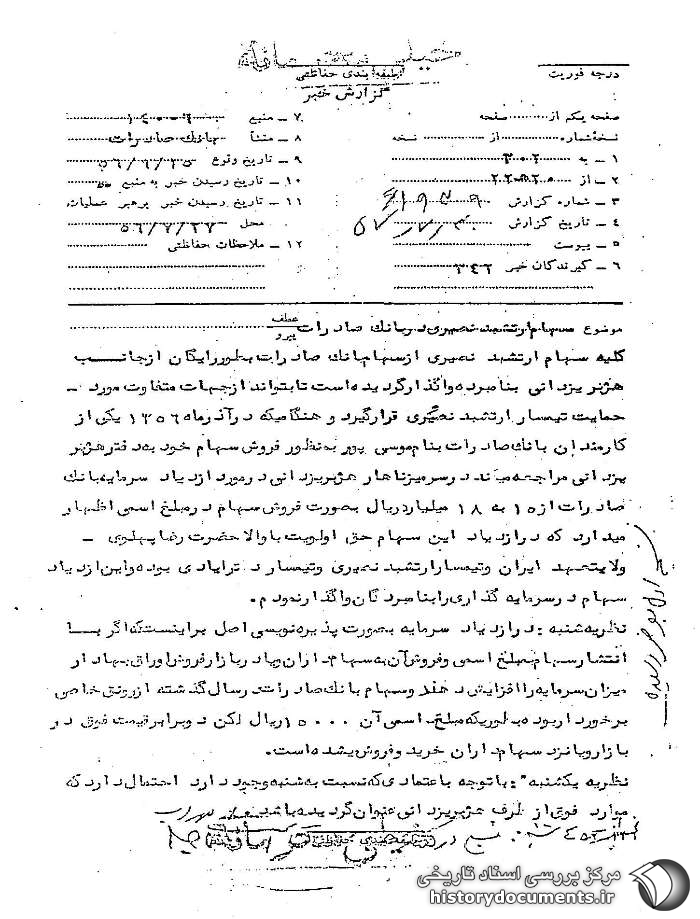 خیلی محرمانه
طبقه بندی حفاظتی
درجه فوریت
گزارش خبر
صفحه یکم از صفحه
نسخه شماره از نسخه
۱ – به ۳۰۲
۲ – از
۳ – شماره گزارش
۴ – تاریخ گزارش
۵ – پیوست
۶ – گیرندگان خبر ۳۴۲
۷ – منبع
۸ – منشأ بانك صادرات
۹ – تاریخ وقوع
۱۰ – تاریخ رسیدن خبر به منبع
۱۱ – تاریخ رسیدن خبر برهبر عملیات
محل ۵۶/۷/۲۷
۱۲ – ملاحظات حفاظتی
موضوع سهام ارتشبد نصیری در بانك صادرات عطف پیرو
کلیه سهام ارتشبد نصیری از سهام بانك صادرات بطور رایگان از جانب
هژبر یزدانی بنامبرده واگذار گردیده است تا بتواند از جهات متفاوت مورد –
حمایت تیمسار ارتشبد نصیری قرار گیرد و هنگامیکه در آذرماه ۱۳۵۶ یکی از
کارمندان بانك صادرات بنام موسی پور به منظور فروش سهام خود به دفتر هژبر
یزدانی مراجعه میکند در سر میز ناهار هژبر یزدانی در مورد ازدیاد سرمایه بانك
صادرات از ۱۵ به ۱۸ میلیارد ریال بصورت فروش سهام در مبلغ اسمی اظهار
میدارد که در ازدیاد این سهام حق اولویت با والاحضرت رضا پهلوی –
ولایتعهد ایران و تیمسار ارتشبد نصیری و تیمسار د ترایادی بوده و این ازدیاد
سهام در سرمایه گذاری را بنامبردگان واگذار نمودم.
نظریه شنبه : در ازدیاد سرمایه بصورت پذیره نویسی اصل بر اینست که اگر بــا
انتشار سهام مبلغ اسمی و فروش آن به سهامداران ویا در بازار فروش اوراق بهادار
میزان سرمایه را افزایش دهند و سهام بانك صادرات در سال گذشته از رونق خاصی
برخوردار بوده بطوریکه مبلغ اسمی آن ۱۵۰۰۰ ریال لکن دو برابر قیمت فوق در
بازار و یا نزد سهامداران خرید و فروش میشده است.
نظریه یکشنبه : با توجه باعتمادی که نسبت به شنبه وجود دارد احتمال دارد که
موارد فوق از طرف هژبر یزدانی عنوان گردیده باشد
طبقه بندی حفاظتی
خیلی محرمانه
مرکز بررسی اسناد تاریخی
historydocuments.ir